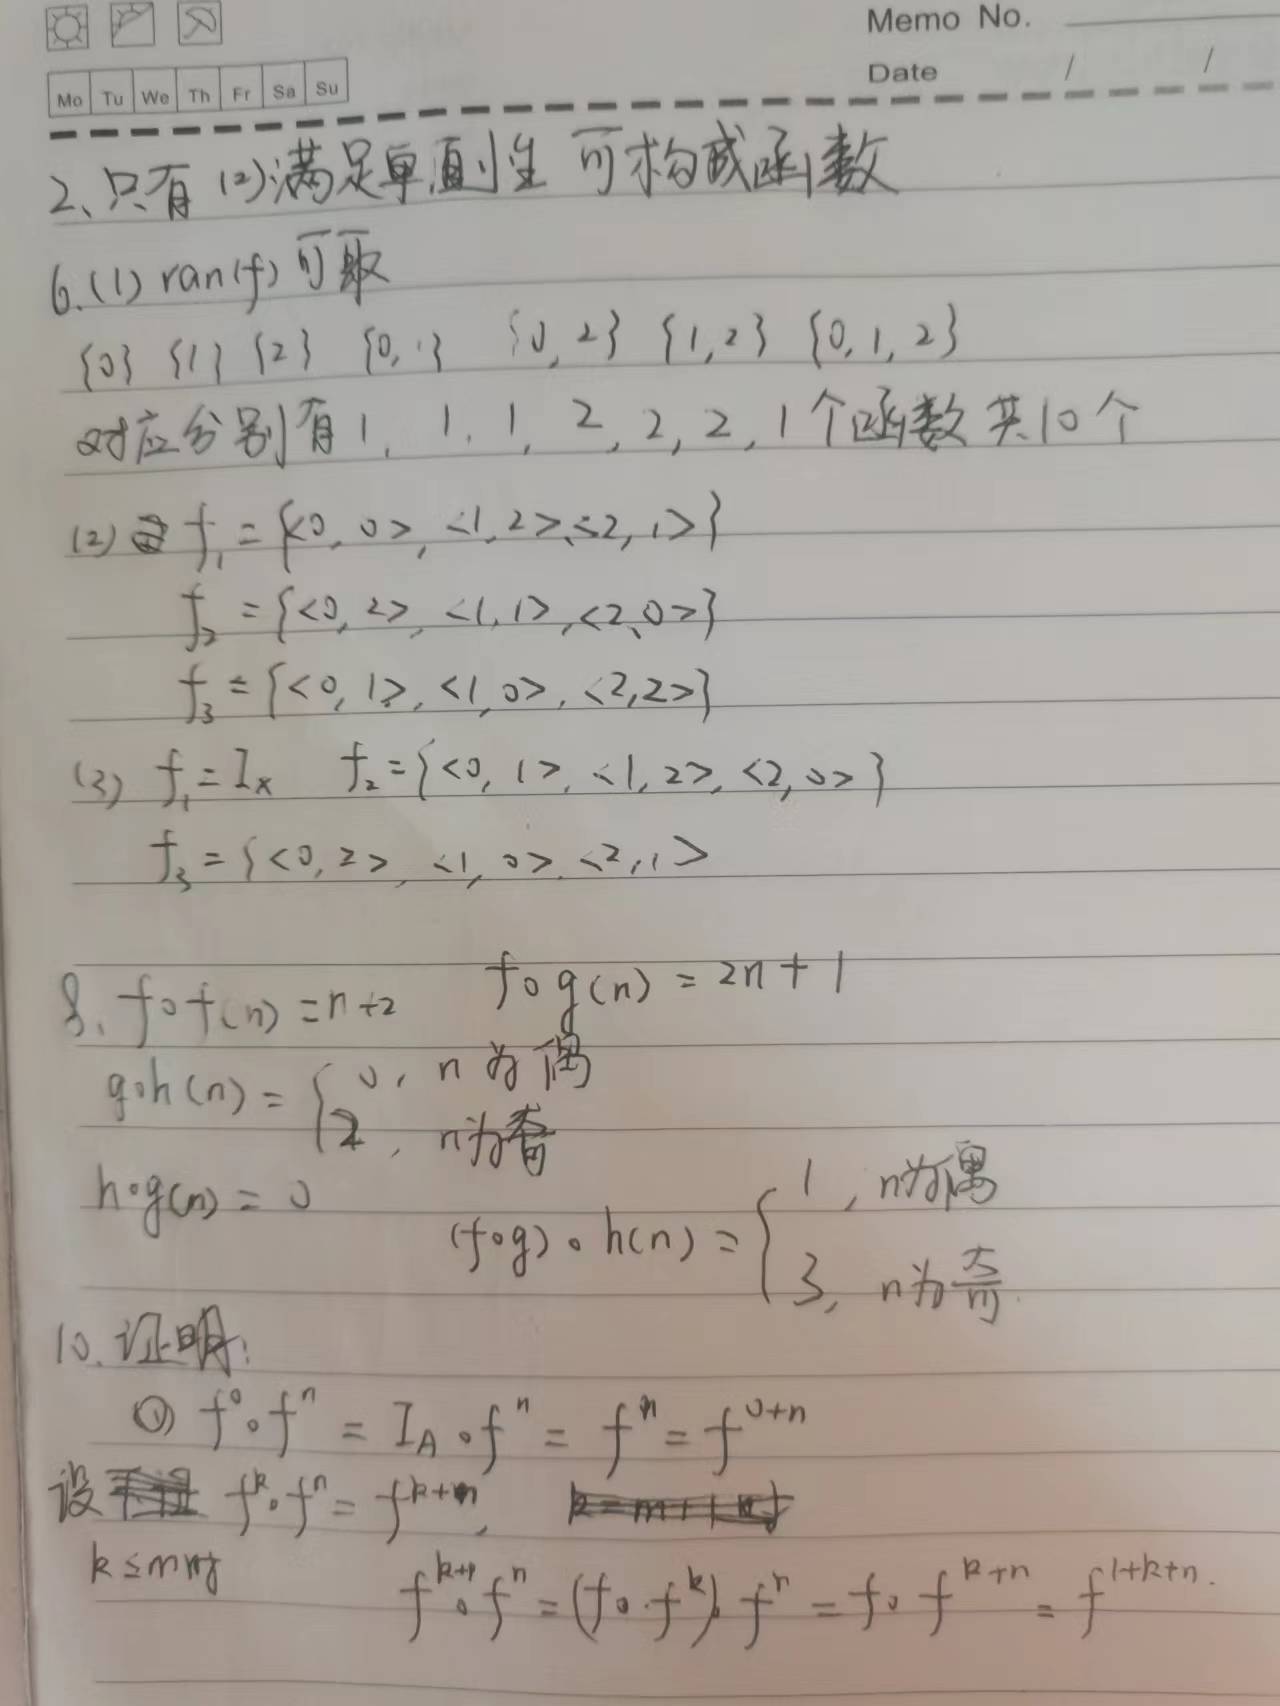 Memo No.
Mo Tu We Th Fr Sa Su
Date / /
2、只有(2)满足单值性 可构成函数
6.(1) ran(f) 可取
{0} {1} {2} {0,1} {0,2} {1,2} {0,1,2}
对应分别有1, 1, 1, 2, 2, 2, 1个函数 共10个
(2) f₁ = {<0,0>, <1,2>, <2,1>}
f₂ = {<0,2>, <1,1>, <2,0>}
f₃ = {<0,1>, <1,0>, <2,2>}
(3) f₁ = Iₓ f₂ = {<0,1>, <1,2>, <2,0>}
f₃ = {<0,2>, <1,0>, <2,1>
8. f∘f(n) = n+2 f∘g(n) = 2n+1
g∘h(n) = { 0, n为偶
2, n为奇
h∘g(n) = 0
(f∘g)∘h(n) = { 1, n为偶
3, n为奇
10. 证明:
① f⁰∘fⁿ = I_A∘fⁿ = fⁿ = f⁰⁺ⁿ
设 fᵏ∘fⁿ = fᵏ⁺ⁿ,
k≤m时
fᵏ⁺¹∘fⁿ = (f∘fᵏ)∘fⁿ = f∘fᵏ⁺ⁿ = f¹⁺ᵏ⁺ⁿ.